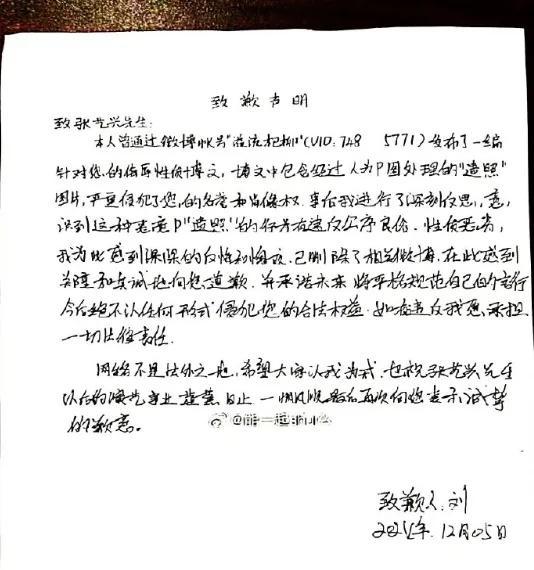 致歉声明
致张艺兴先生:
本人曾通过微博账号"溢流杞柳"(UID:748 5771)发布了一篇
针对您的侮辱性质博文,博文中包含经过人为P图处理的"遗照"
图片,严重侵犯了您的名誉和肖像权.事后我进行了深刻反思,意
识到这种恶意P"遗照"的行为有违反公序良俗.性质恶劣,
我为此感到深深的自愧和悔改.已删除了相关微博.在此感到
并真诚地向您道歉.并承诺未来将严格规范自己的言行
今后绝不以任何形式侵犯您的合法权益.如有违反我愿承担
一切法律责任.
网络不是法外之地,希望大家以我为戒.也祝张艺兴先生
以后的演艺事业蒸蒸日上 一帆风顺最后再次向您表示诚挚
的歉意。
致歉人:刘
12月05日